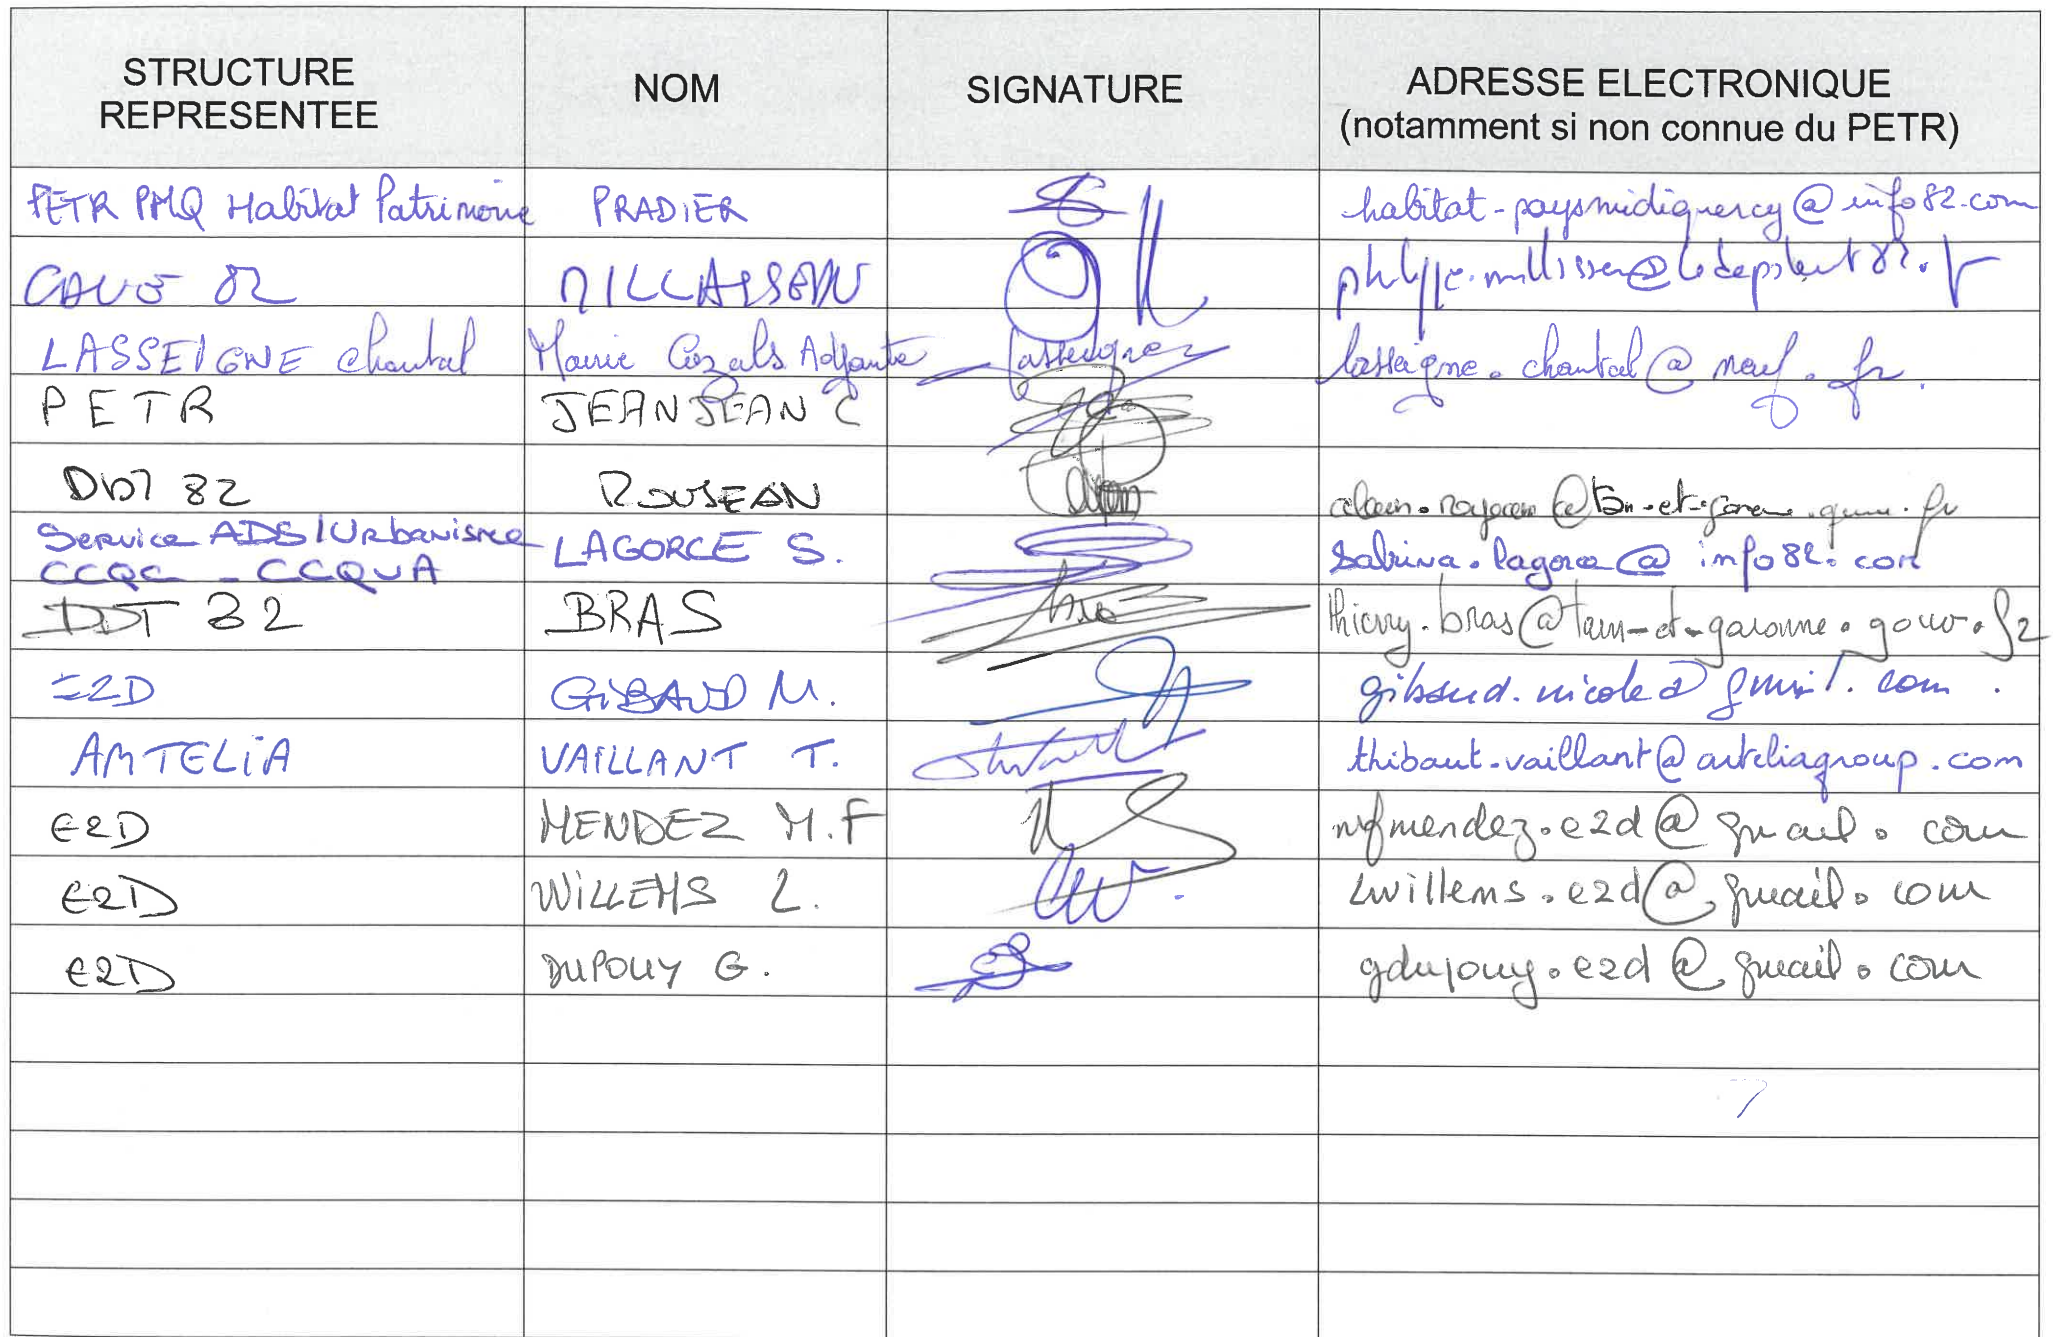 STRUCTURE
REPRESENTEE
NOM
SIGNATURE
ADRESSE ELECTRONIQUE
(notamment si non connue du PETR)
PETR PMQ Habitat Patrimoine PRADIER habitat-paysmidiquercy@info82.com
CAUE 82
LASSEIGNE Chantal Mairie Cazals Adjointe Lasseigne lasseigne.chantal@neuf.fr.
PETR JEANJEAN C
DDT 82
Service ADS/Urbanisme
CCQC - CCQVA LAGORCE S. Sabrina.lagorce@info82.com
DDT 82 BRAS thierry.bras@tarn-et-garonne.gouv.fr
E2D GIBAUD N. gibaud.nicole@gmail.com.
ARTELIA VAILLANT T. thibaut.vaillant@arteliagroup.com
E2D MENDEZ M.F mfmendez.e2d@gmail.com
E2D WILLEMS L. lwillems.e2d@gmail.com
E2D DUPOUY G. gdupouy.e2d@gmail.com